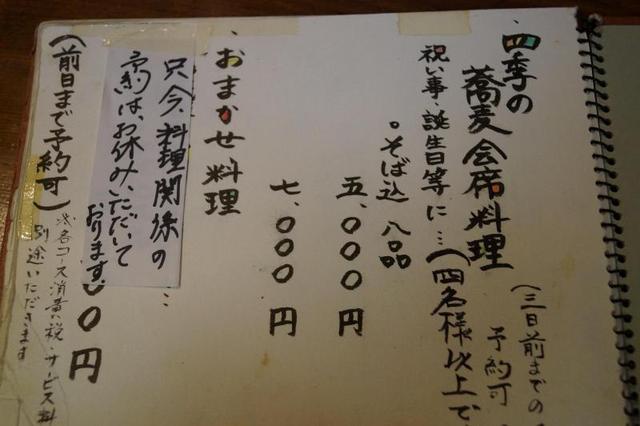 四季の
蕎麦会席料理
(三日前までの
予約可
祝い事・誕生日等に…(四名様以上で
。そば込 八品
五、〇〇〇円
七、〇〇〇円
おまかせ料理…
只今、料理関係の
予約は、お休みいただいて
おります。
〇〇円
(前日まで予約可)
各コース消費税・サービス料
別途いただきます